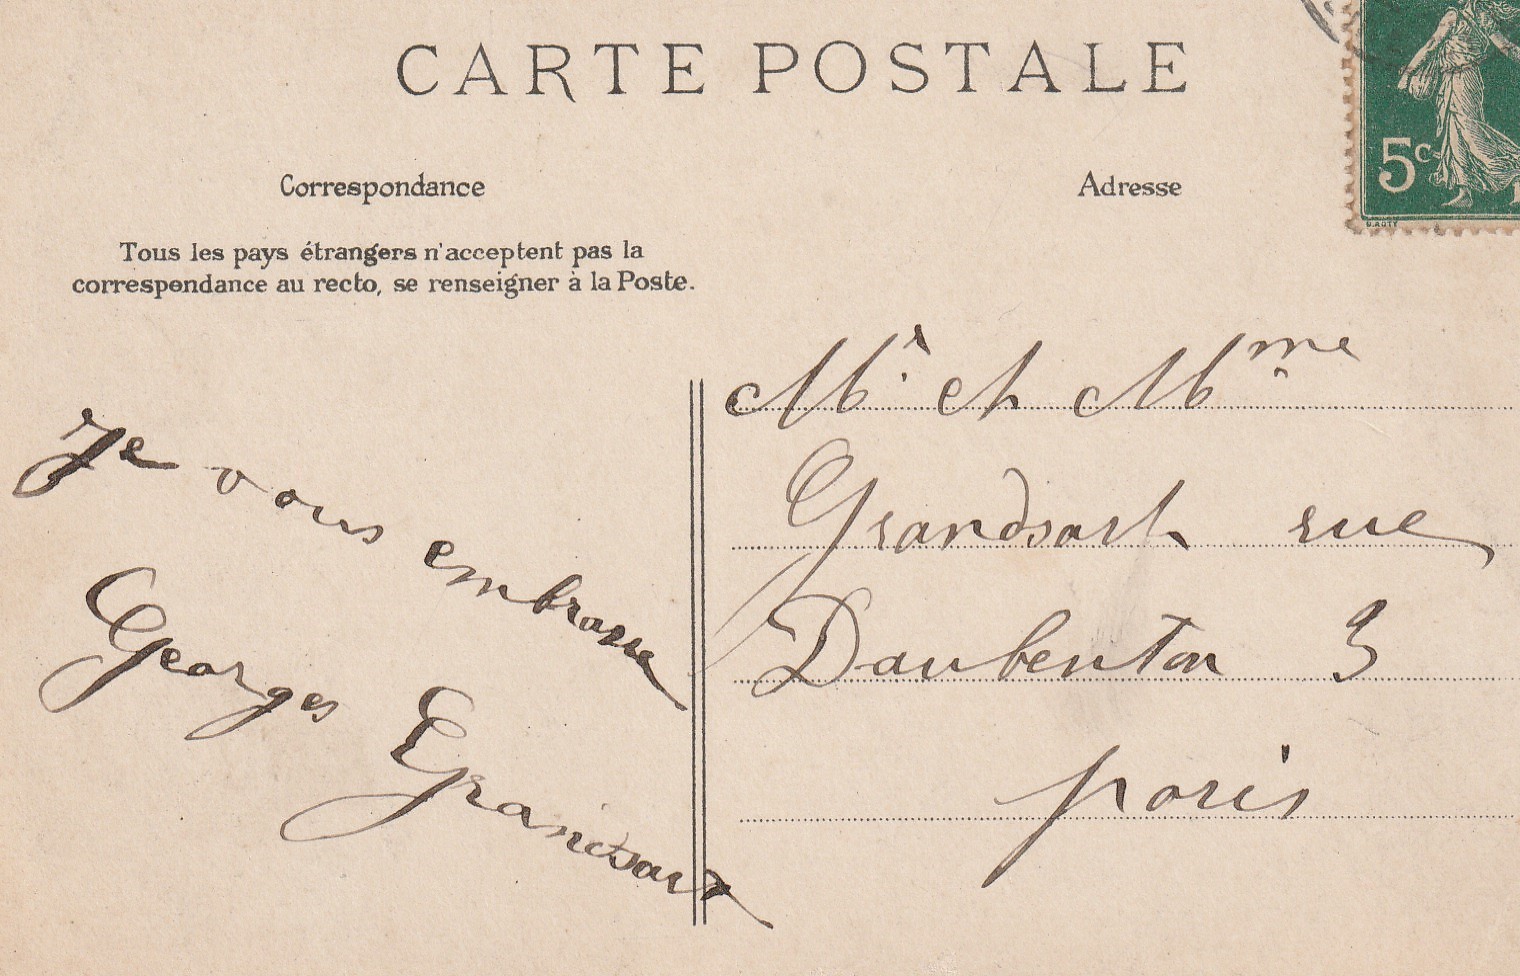 CARTE POSTALE
Correspondance
Adresse
Tous les pays étrangers n'acceptent pas la
correspondance au recto, se renseigner à la Poste.
5c
Je vous embrasse
Georges Grandsart
Mr. et Mme
Grandsart rue
Daubenton 3
paris